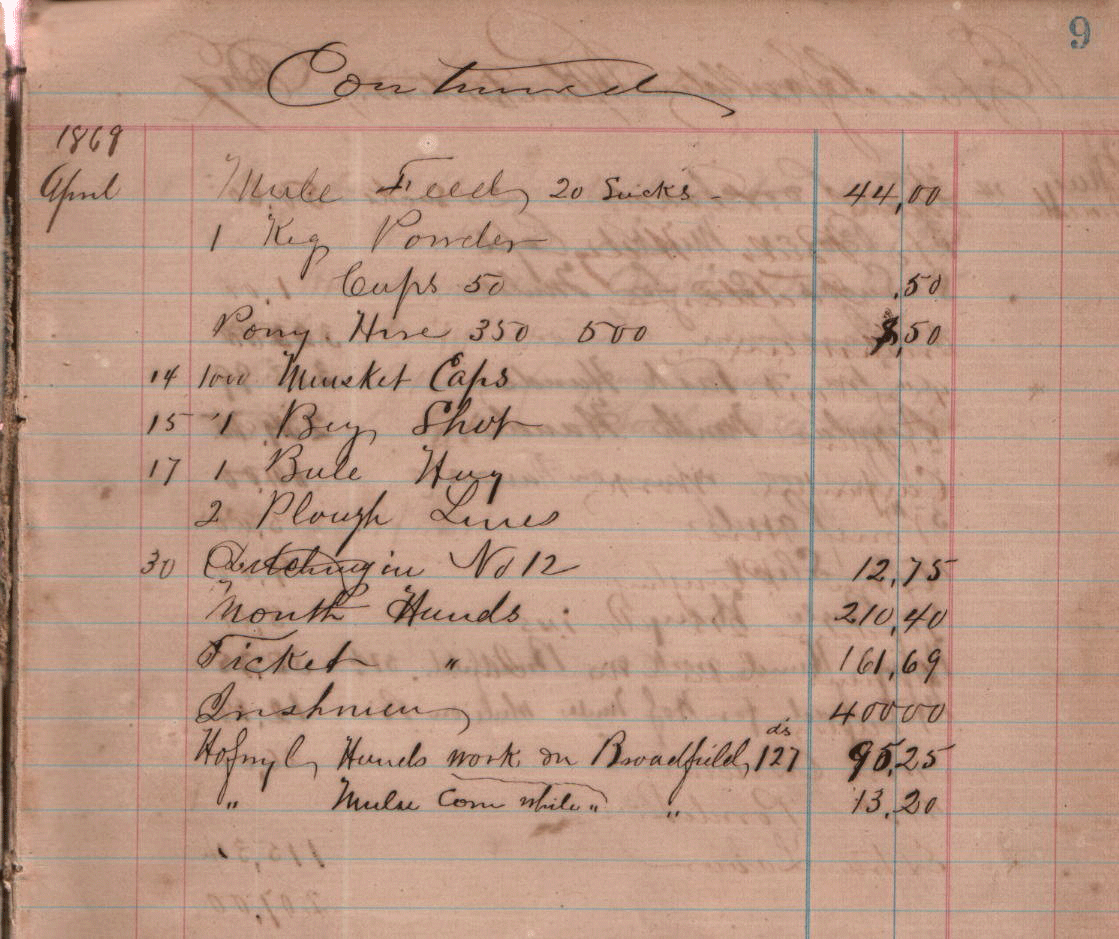 9
Continued
1869
April Mule Feed 20 Sacks - 44,00
1 Keg Powder
Caps 50 .50
Pony Hire 350 500 ,50
14 1000 Musket Caps
15 1 Bag Shot
17 1 Bale Hay
2 Plough Lines
30 No 12 12,75
Month Hands 210,40
Ticket " 161,69
Irishmen 40000
Hofwyl Hands work on Broadfield 127 ds 95,25
" Mules Corn while " " 13,20